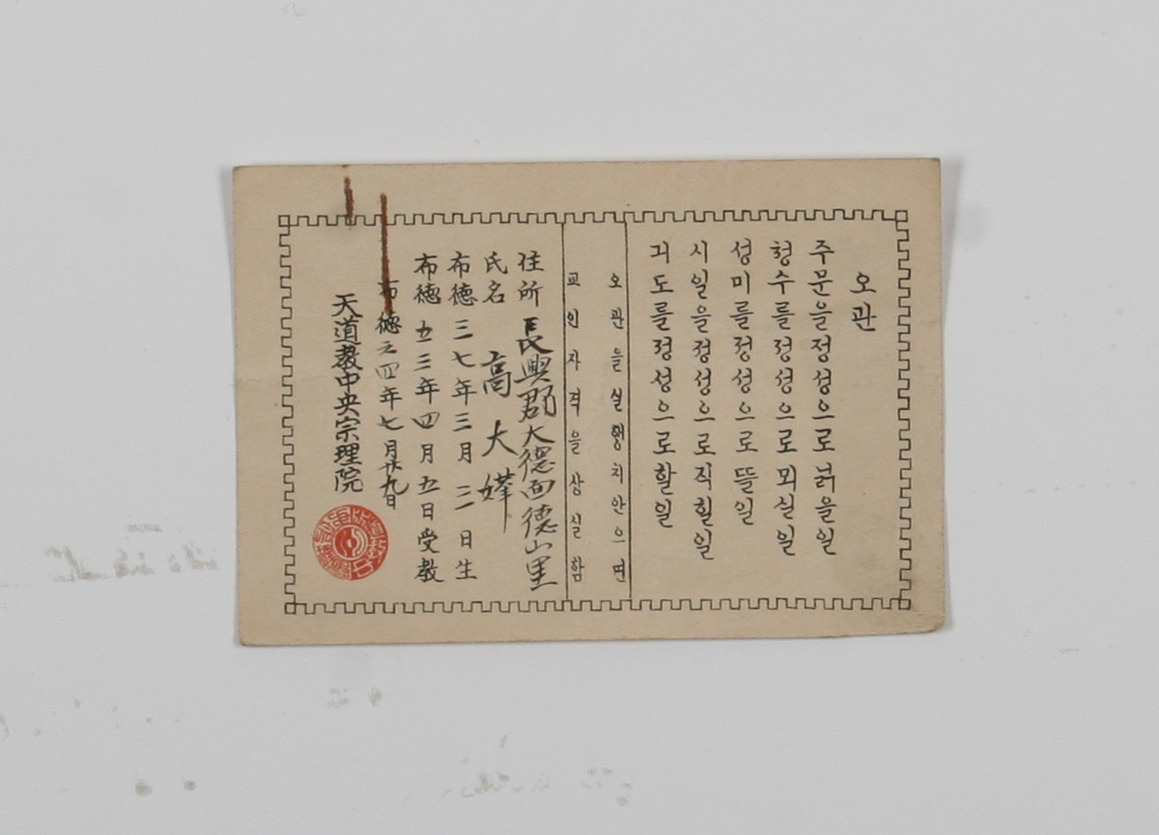 오관
주문을정성으로넑을일
청수를정성으로뫼실일
성미를정성으로뜰일
시일을정성으로직힐일
긔도를정성으로할일
오관을실행치안으면
교인자격을상실함
住所 長興郡大德面德山里
氏名 高大
布德三七年三月三日生
布德五三年四月五日受敎
布德六四年七月廿九日
天道敎中央宗理院